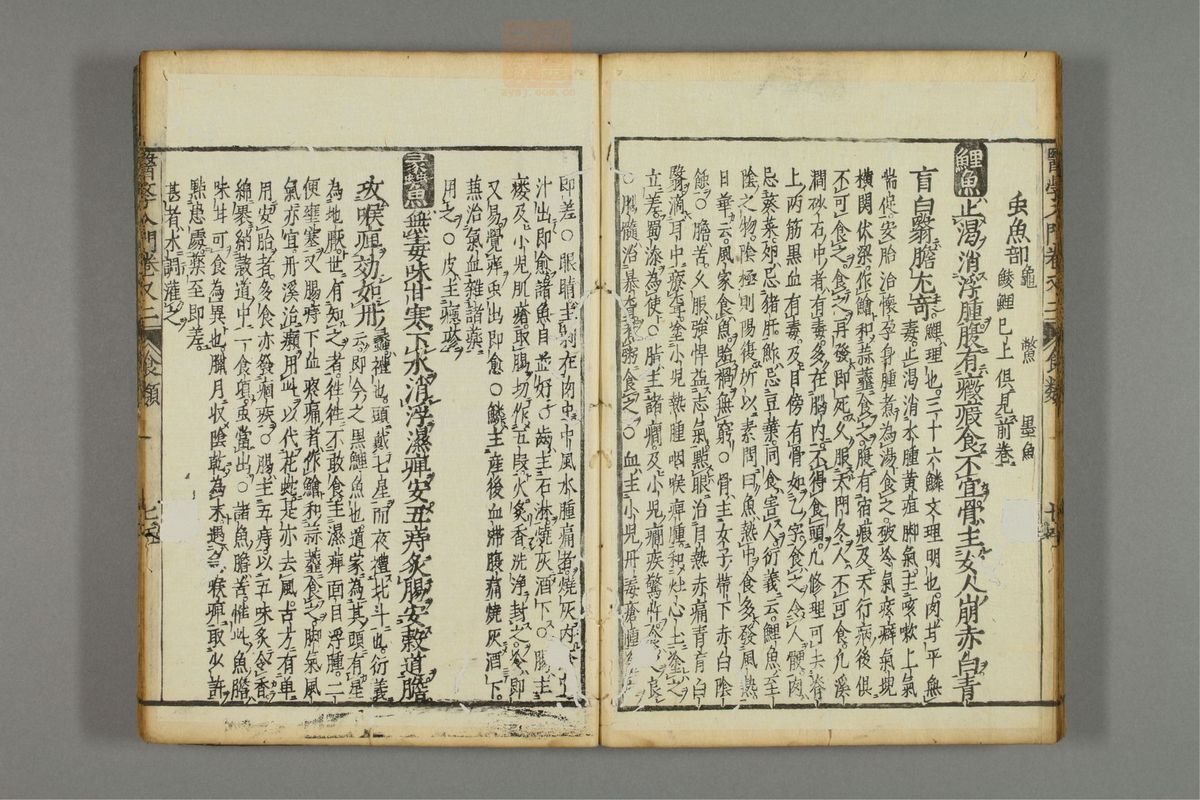 虫魚部 龜 鱉 墨魚
鯪鯉 已上俱見前卷
鯉魚 止渴消浮腫腹有癥瘕食不宜骨主女人崩赤白青
盲白翳膽尤奇
鯉理也三十六鱗文理明也肉甘平無
毒止渴消水腫黃疸脚氣主咳嗽上氣
喘促安胎治懷孕身腫煮為湯食之破冷氣痃癖氣塊
橫関伏梁作鱠和蒜虀食之腹有宿瘕及天行病後俱
不可食之食之再發即死久服天門冬人不可食凡溪
澗砂石中者有毒多在腦內不得食頭凡修理可去脊
上兩筋黑血有毒及目傍有骨如乙字食之令人鯁肉
忌葵菜卵忌猪肝鮓忌豆藿同食害人衍義云鯉魚至
陰之物陰極則陽復所以素問曰魚熱中食多發風熱
日華云風家食魚貽禍無窮○骨主女子帶下赤白陰
蝕○膽苦久服強悍益志氣點眼治目熱赤痛青盲白
翳滴耳中療聾塗小兒熱腫咽喉痺腫和灶心土塗之
立差蜀漆為使○腦主諸癇及小兒癇疾驚忤
○腦髓治暴聾煮粥食之○血主小兒丹毒瘡腫
即差○眼睛主刺在肉中中風水腫痛者燒灰
汁出即愈諸魚目並好○齒主石淋燒灰酒下○腸主
瘻及小兒肌瘡取腸切作五段火炙香洗淨封之冷即
又易覺痒虫出即愈○鱗主産後血滯腹痛燒灰酒下
蕪治氣血雜諸藥
用之○皮主癮疹
蠡魚 無毒味甘寒下水消浮濕痺安五痔炙腸安穀道膽
攻喉痺効如丹
蠡禮也頭戴七星而夜禮北斗也衍義
云即今之黑鯉魚也道家為其頭有星
為地厭世有知之者徃徃不敢食主濕痺面目浮腫二
便壅塞又腸痔下血疼痛者作鱠和蒜虀食之脚氣風
氣亦宜丹溪治癩用此以代花蛇是亦去風古方有单
用安胎者多食亦發痼疾○腸主五痔以五味炙令香
綿裹納穀道中一食頃虫當出○諸魚膽苦惟此魚膽
味甘可食為異也臘月収陰乾為末遇急喉痺取少許
點患處藥至即差
甚者水調灌之
醫學入門卷又二 食類